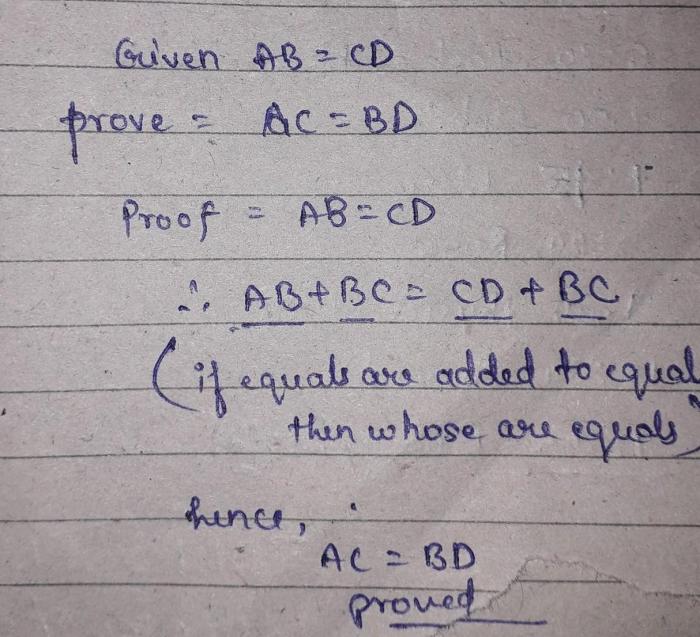 Given AB = CD
prove = AC = BD
Proof = AB = CD
∴ AB + BC = CD + BC
(if equals are added to equal
then whose are equals)
hence,
AC = BD
proved